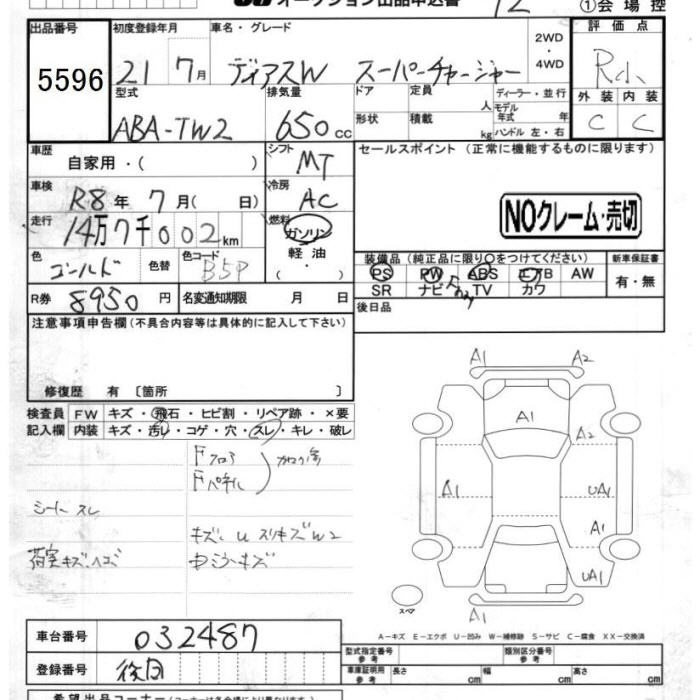 オークション出品申込書
12
①会場控
出品番号 5596
初度登録年月 21 7月
車名・グレード ディアスW スーパーチャージャー
2WD・4WD
評価点 R小
外装 内装
C C
型式 ABA-TW2
排気量 650cc
ドア
形状
定員 人
積載 kg
ディーラー・並行
モデル年式 年
ハンドル 左・右
車歴 自家用・( )
シフト MT
セールスポイント(正常に機能するものに限ります)
車検 R8年 7月( 日)
冷房 AC
NOクレーム・売切
走行 14万7千002km
燃料 ガソリン
軽油
・( )
色 ゴールド 色替 色コード B5P
装備品(純正品に限り○をつけてください)
新車保証書
PS PW ABS エアB AW
SR ナビ TV カワ
有・無
R券 8950円 名変通知期限 月 日
後日品
注意事項申告欄(不具合内容等は具体的に記入して下さい)
修復歴 有〔箇所 〕
検査員記入欄
FW キズ・飛石・ヒビ割・リペア跡・×要
内装 キズ・汚れ・コゲ・穴・スレ・キレ・破レ
Fフロア
Fパネル
シートスレ
キズ、U スリキズW2
荷室キズ、ヘコミ
中ジミキズ
A1 A2
A1
A2
A1 UA1
A1
UA1
A1
スペア
A-キズ E-エクボ U-凹み W-補修跡 S-サビ C-腐食 XX-交換済
車台番号 032487
型式指定番号 参考
類別区分番号 参考
登録番号 後日
車庫証明用 参考 長さ cm 幅 cm 高さ cm
希望出品コーナー